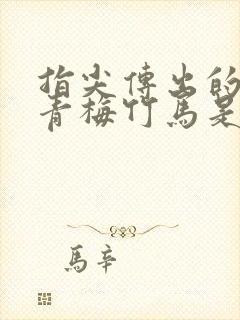 指尖傳出的
青梅竹馬是
馬辛